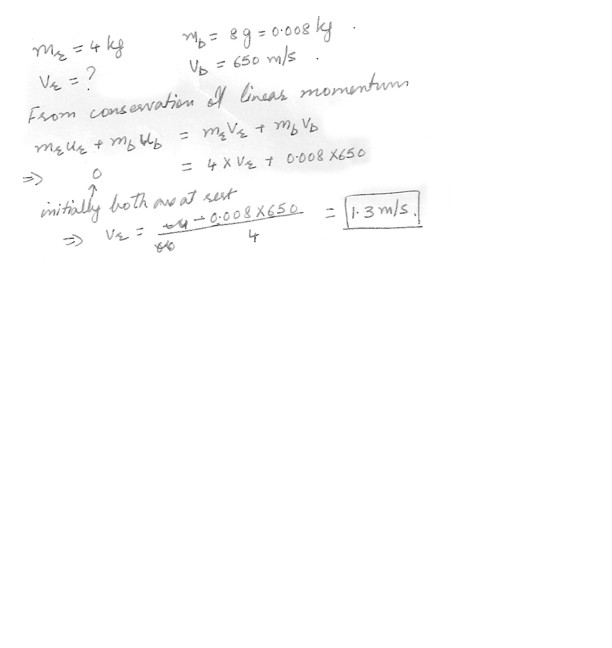 m_r = 4 kg    m_b = 8 g = 0.008 kg.
V_r = ?    V_b = 650 m/s.
From conservation of linear momentum
m_r u_r + m_b u_b = m_r V_r + m_b V_b
⇒ 0 = 4 × V_r + 0.008 × 650
↑
initially both are at rest
⇒ V_r = - 0.008 × 650 / 4 = 1.3 m/s.